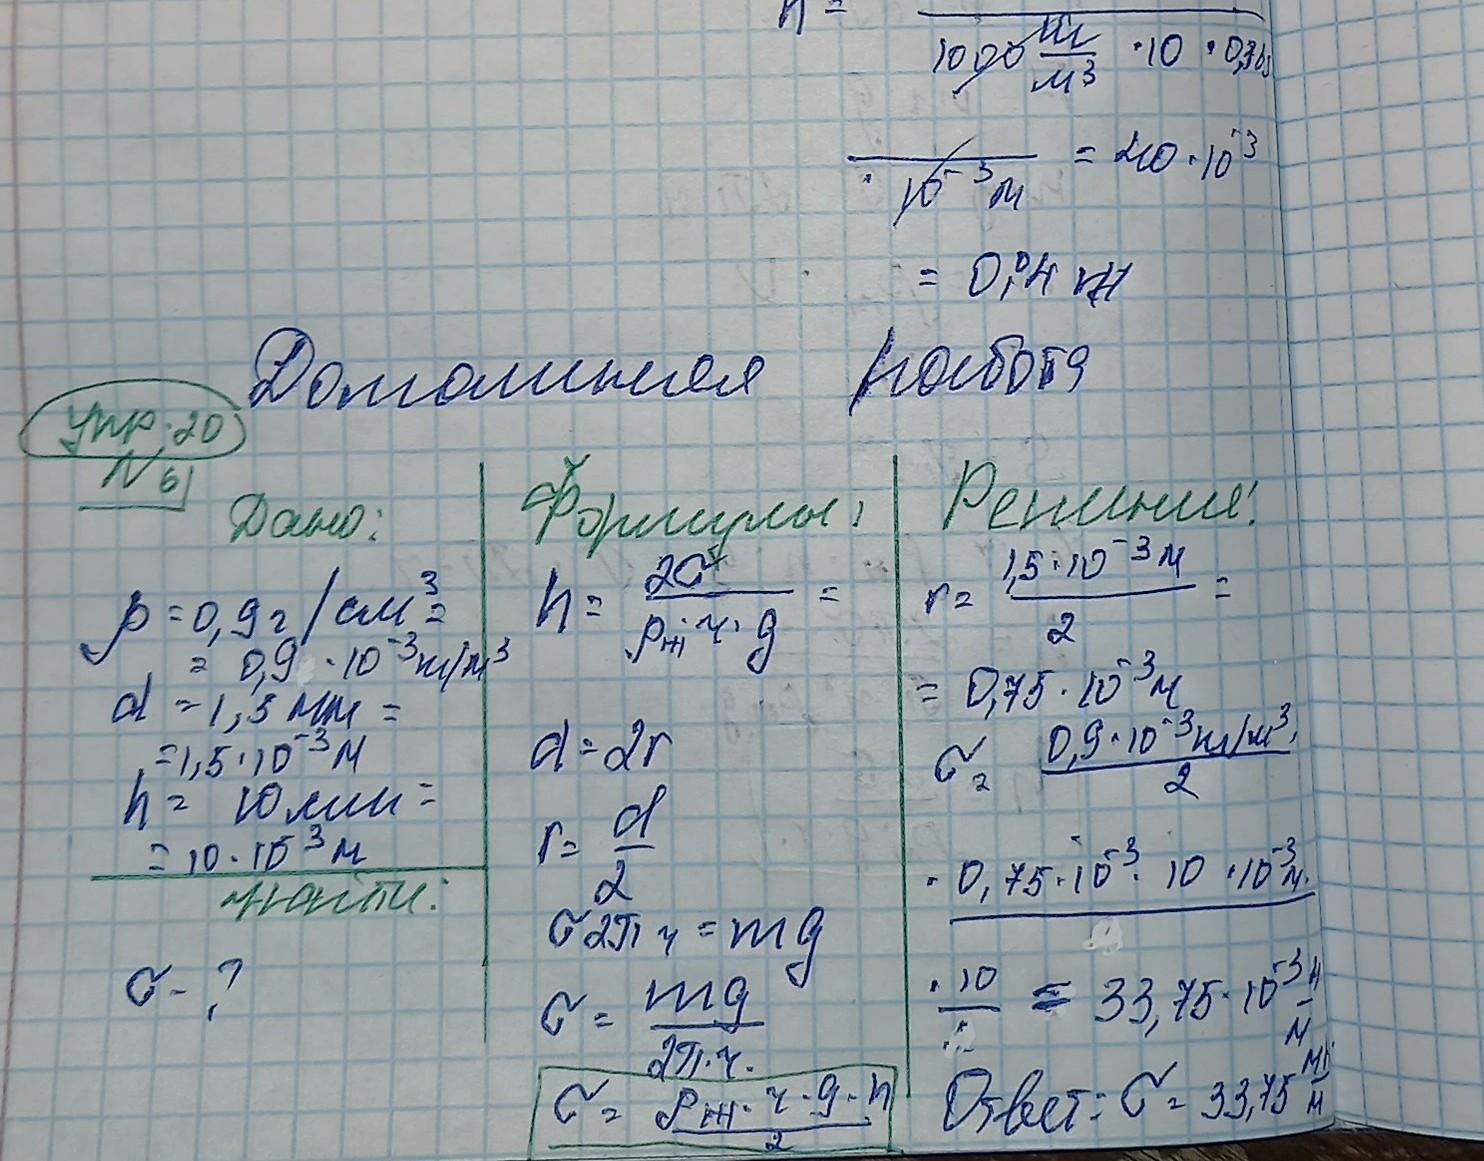 h =
1000 кг/м³ · 10 · 0,
· 10⁻³ м = 40 · 10⁻³
= 0,04 м
Домашняя работа
Упр. 20
N 6
Дано:
ρ = 0,9 г/см³ =
= 0,9 · 10⁻³ кг/м³
d = 1,5 мм =
= 1,5 · 10⁻³ м
h = 10 мм =
= 10 · 10⁻³ м
Найти:
σ - ?
Формулы:
h = 2σ / ρж · r · g =
d = 2r
r = d / 2
σ 2π r = mg
σ = mg / 2π · r.
σ = ρж · r · g · h / 2
Решение:
r = 1,5 · 10⁻³ м / 2 =
= 0,75 · 10⁻³ м
σ = 0,9 · 10⁻³ кг/м³ · / 2
· 0,75 · 10⁻³ · 10 · 10⁻³ м ·
· 10 = 33,75 · 10⁻³ Н/м
Ответ: σ = 33,75 мН/м